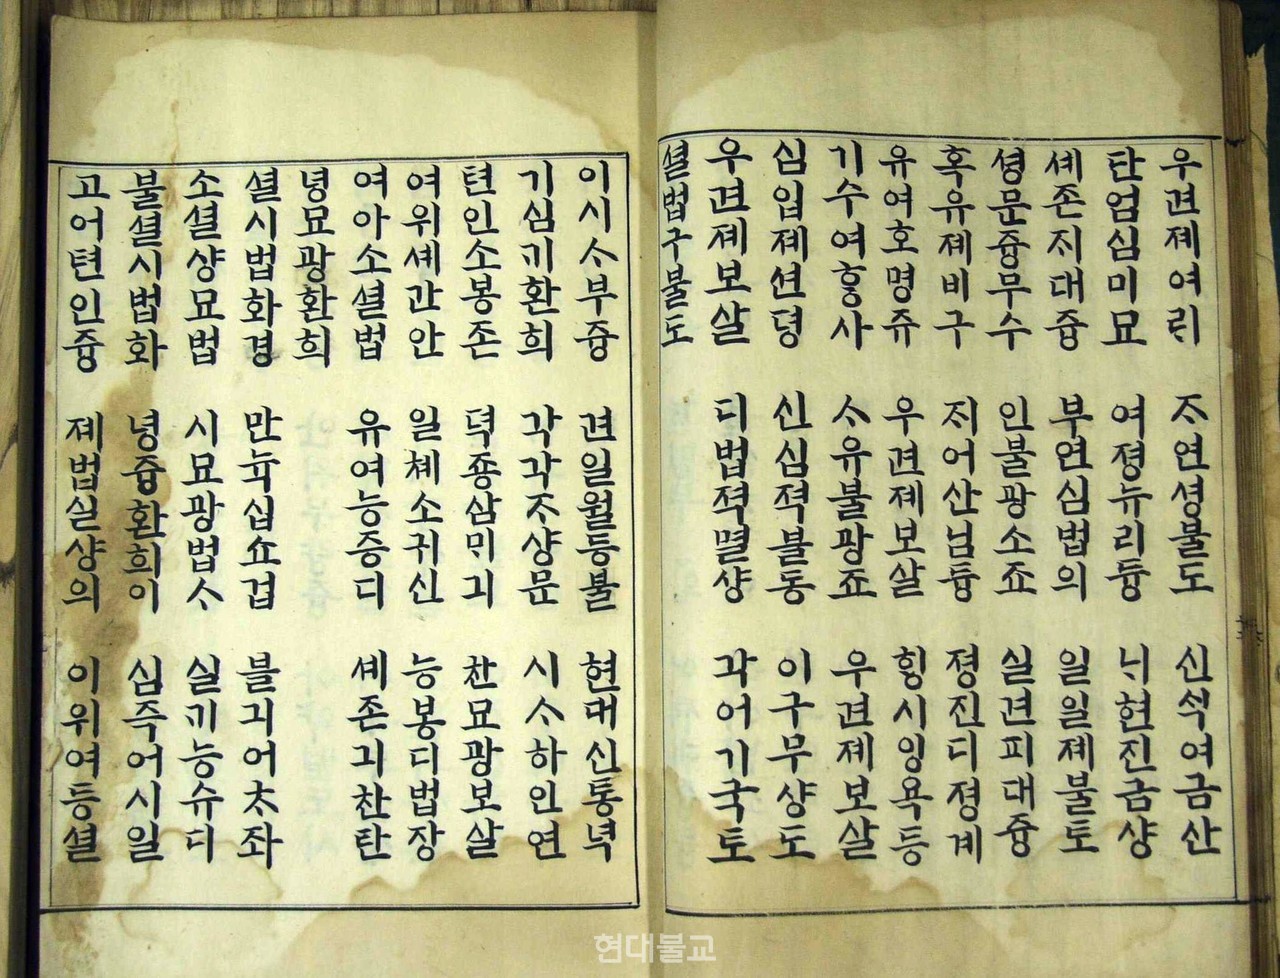 우견졔여ᄅᆡ ᄌᆞ연셩불도 신ᄉᆡᆨ여금산
탄엄심미묘 여졍뉴리듕 ᄂᆡ현진금샹
셰존ᄌᆡ대즁 부연심법의 일일졔불토
셩문즁무수 인불광소죠 실견피대즁
혹유졔비구 ᄌᆡ어산님듕 졍진디졍계
유여호명쥬 우견졔보살 ᄒᆡᆼ시잉욕등
기수여ᄒᆞᆼ사 ᄉᆞ유불광죠 우견졔보살
심입졔션뎡 신심젹불동 이구무샹도
우견졔보살 디법젹멸샹 각어기국토
셜법구불도
이시ᄉᆞ부즁 견일월등불 현대신통녁
기심ᄀᆡ환희 각각ᄌᆞ샹문 시ᄉᆞ하인연
텬인소봉존 덕죵삼ᄆᆡ긔 찬묘광보살
여위셰간안 일쳬소귀신 능봉디법장
여아소셜법 유여능증디 셰존긔찬탄
녕묘광환희
셜시법화경 만뉵십쇼겁 불긔어ᄎᆞ좌
소셜샹묘법 시묘광법ᄉᆞ 실ᄀᆡ능슈디
불셜시법화 녕즁환희이 심즉어시일
고어텬인즁 졔법실샹의 이위여등셜
현대불교